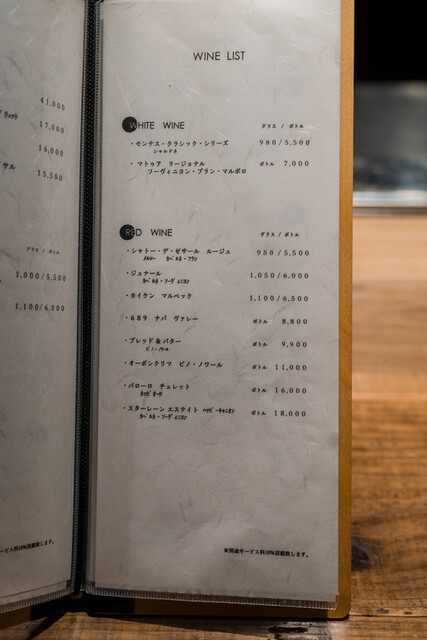 41,000
17,000
16,000
15,500
グラス / ボトル
1,000/5,500
1,100/6,000
ービス料10%頂戴致します。
WINE LIST
WHITE WINE グラス / ボトル
・モンテス・クラシック・シリーズ 980/5,500
シャルドネ
・マトゥア リージョナル ボトル 7,000
ソーヴィニヨン・ブラン・マルボロ
RED WINE グラス / ボトル
・シャトー・デ・ゼサール ルージュ 980/5,500
メルロー カベルネ・フラン
・ジュナール 1,050/6,000
カベルネ・ソーヴィニヨン
・カイケン マルベック 1,100/6,500
・689 ナパ ヴァレー ボトル 8,800
・ブレッド&バター ボトル 9,900
ピノ・ノワール
・オーボンクリマ ピノ・ノワール ボトル 11,000
・バローロ チェレット ボトル 16,000
ネッビオーロ
・スターレーン エステイト ハッピーキャニオン ボトル 18,000
カベルネ・ソーヴィニヨン
※別途サービス料10%頂戴致します。